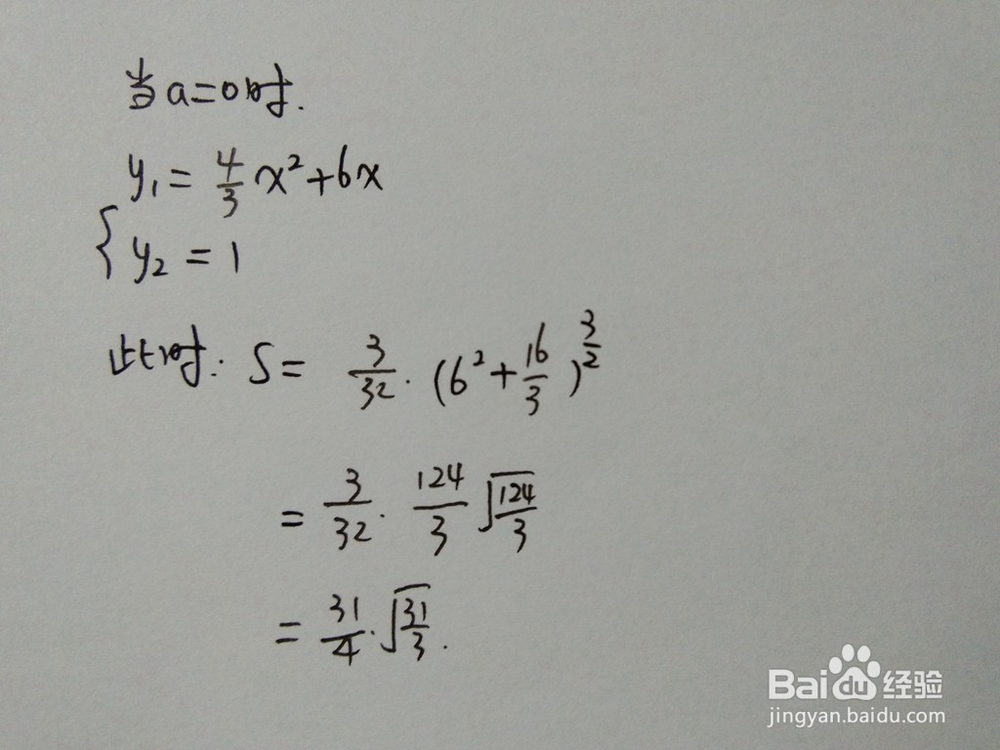 当a=0时.
y₁=4/3x²+6x
{y₂=1
此时: S= 3/32·(6²+16/3)^(3/2)
= 3/32·124/3√(124/3)
= 31/4·√(31/3).
Baidu经验
jingyan.baidu.com